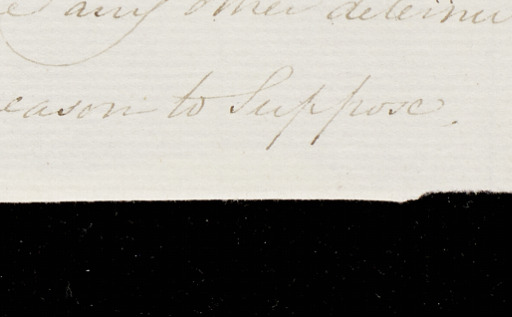 any other determi
eason to Suppose.